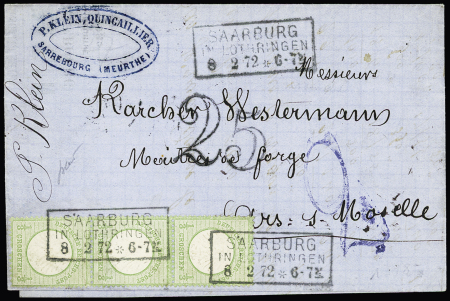 P. KLEIN, QUINCAILLIER,
SARREBOURG (MEURTHE)
SAARBURG
IN LOTHRINGEN
8 2 72 * 6-7½
P Klein
Messieurs
Karcher Westermann
25
Maitre de forge
Ars s Moselle
SAARBURG
IN LOTHRINGEN
8 2 72 * 6-7½
SAARBURG
IN LOTHRINGEN
8 2 72 * 6-7½